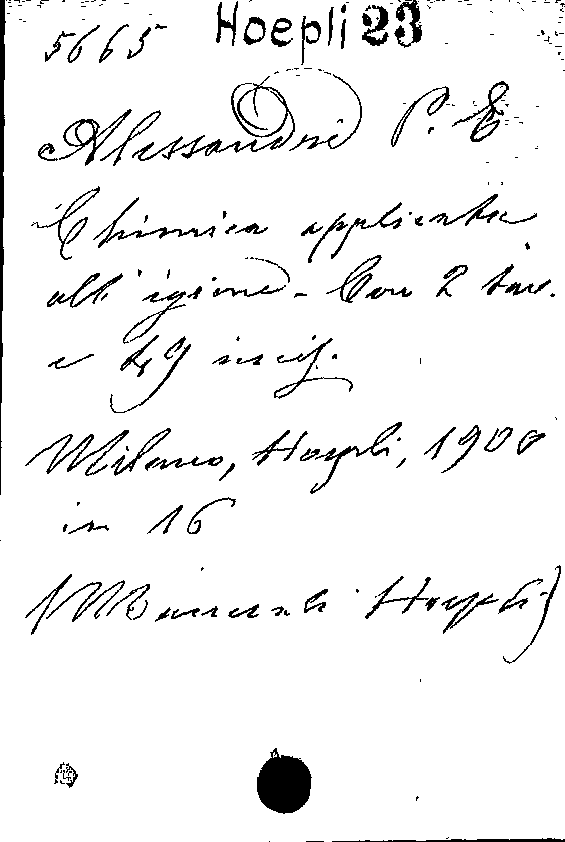 5665 Hoepli 23
Alessandri P. E
Chimica applicata
all'igiene - Con 2 tav.
e 49 incis.
Milano, Hoepli, 1900
in 16
(Manuali Hoepli)